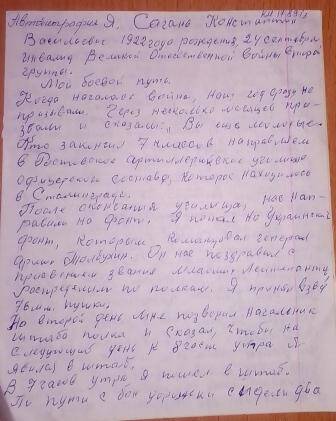 Автобиография КМ 11891/2
Я, Сагань Константин
Васильевич 1922 года рождения, 24 сентября
инвалид Великой Отечественной войны второй
группы.
Мой боевой путь.
Когда началась война, наш год сразу не
призывали. Через несколько месяцев при-
звали и сказали: „Вы еще молодые
Кто закончил 7 классов направляем
в Ростовское артиллерийское училище
офицерского состава, которое находилось
в Сталинграде.
После окончания училища, нас нап-
равили на фронт. Я попал на Украинский
фонт, которым командовал генерал
армии Толбухин. Он нас поздравил с
присвоением звания младший лейтенант,
распределили по полкам. Я принял взвод
76 мм. пушки.
На второй день мне позвонил начальник
штаба полка и сказал, чтобы на
следующий день к 8 часам утра я
явился в штаб.
В 7 часов утра я пошел в штаб.
По пути с бон сидели два